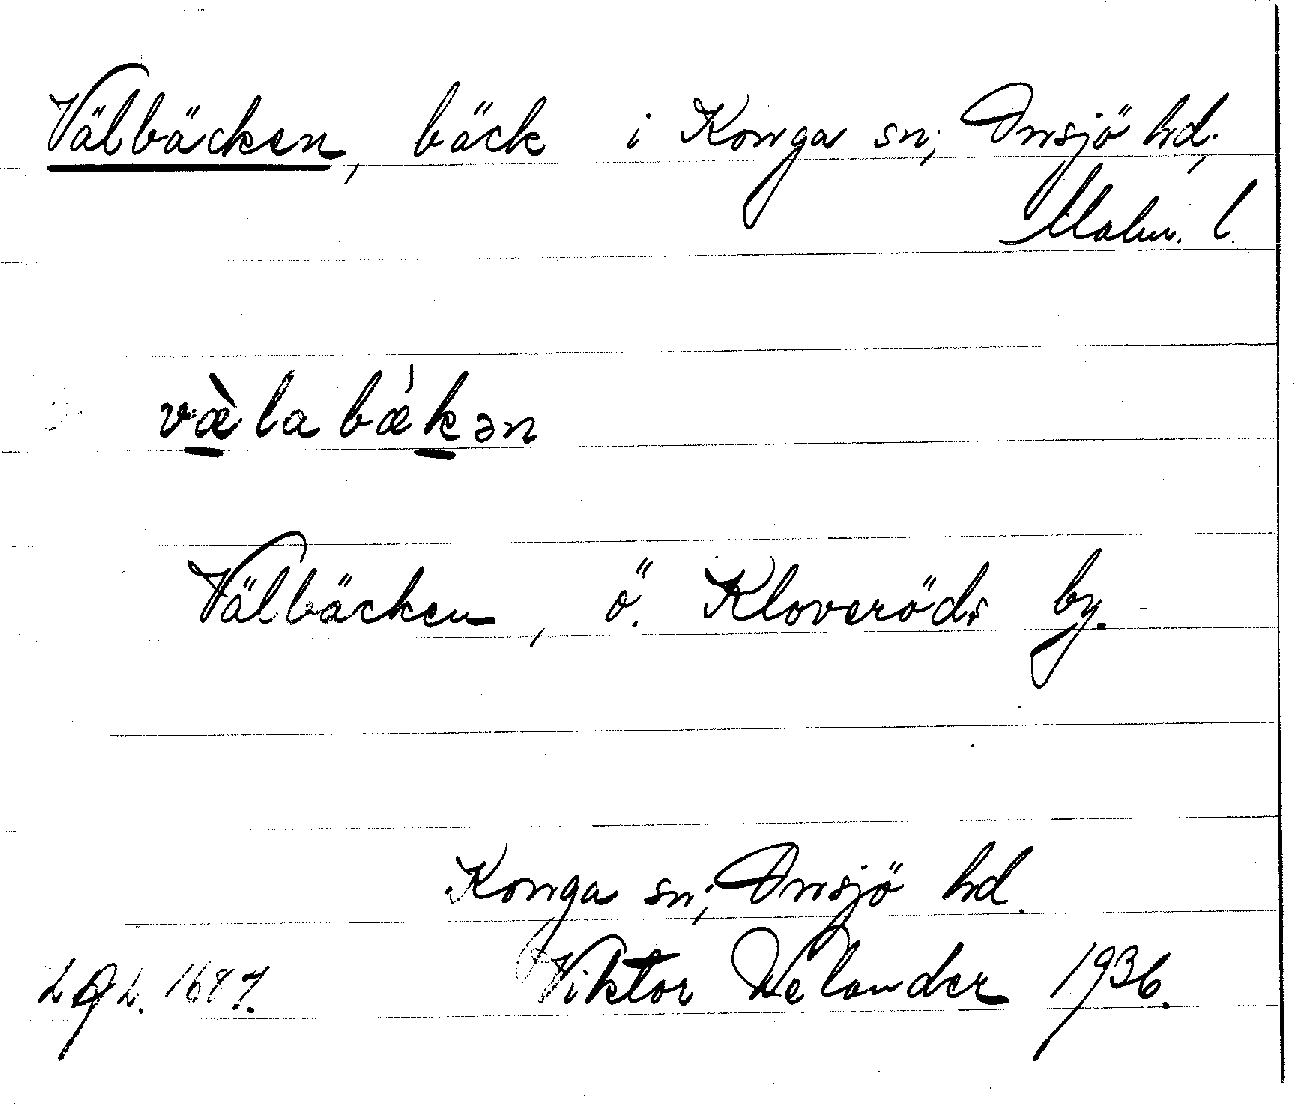 Välbäcken, bäck i Konga sn, Onsjö hd,
Malm. l.
væ̀la bæ̀kən
Välbäcken, ö. Kloveröds by.
Konga sn, Onsjö hd.
LGL. 1687. Viktor Welander 1936.